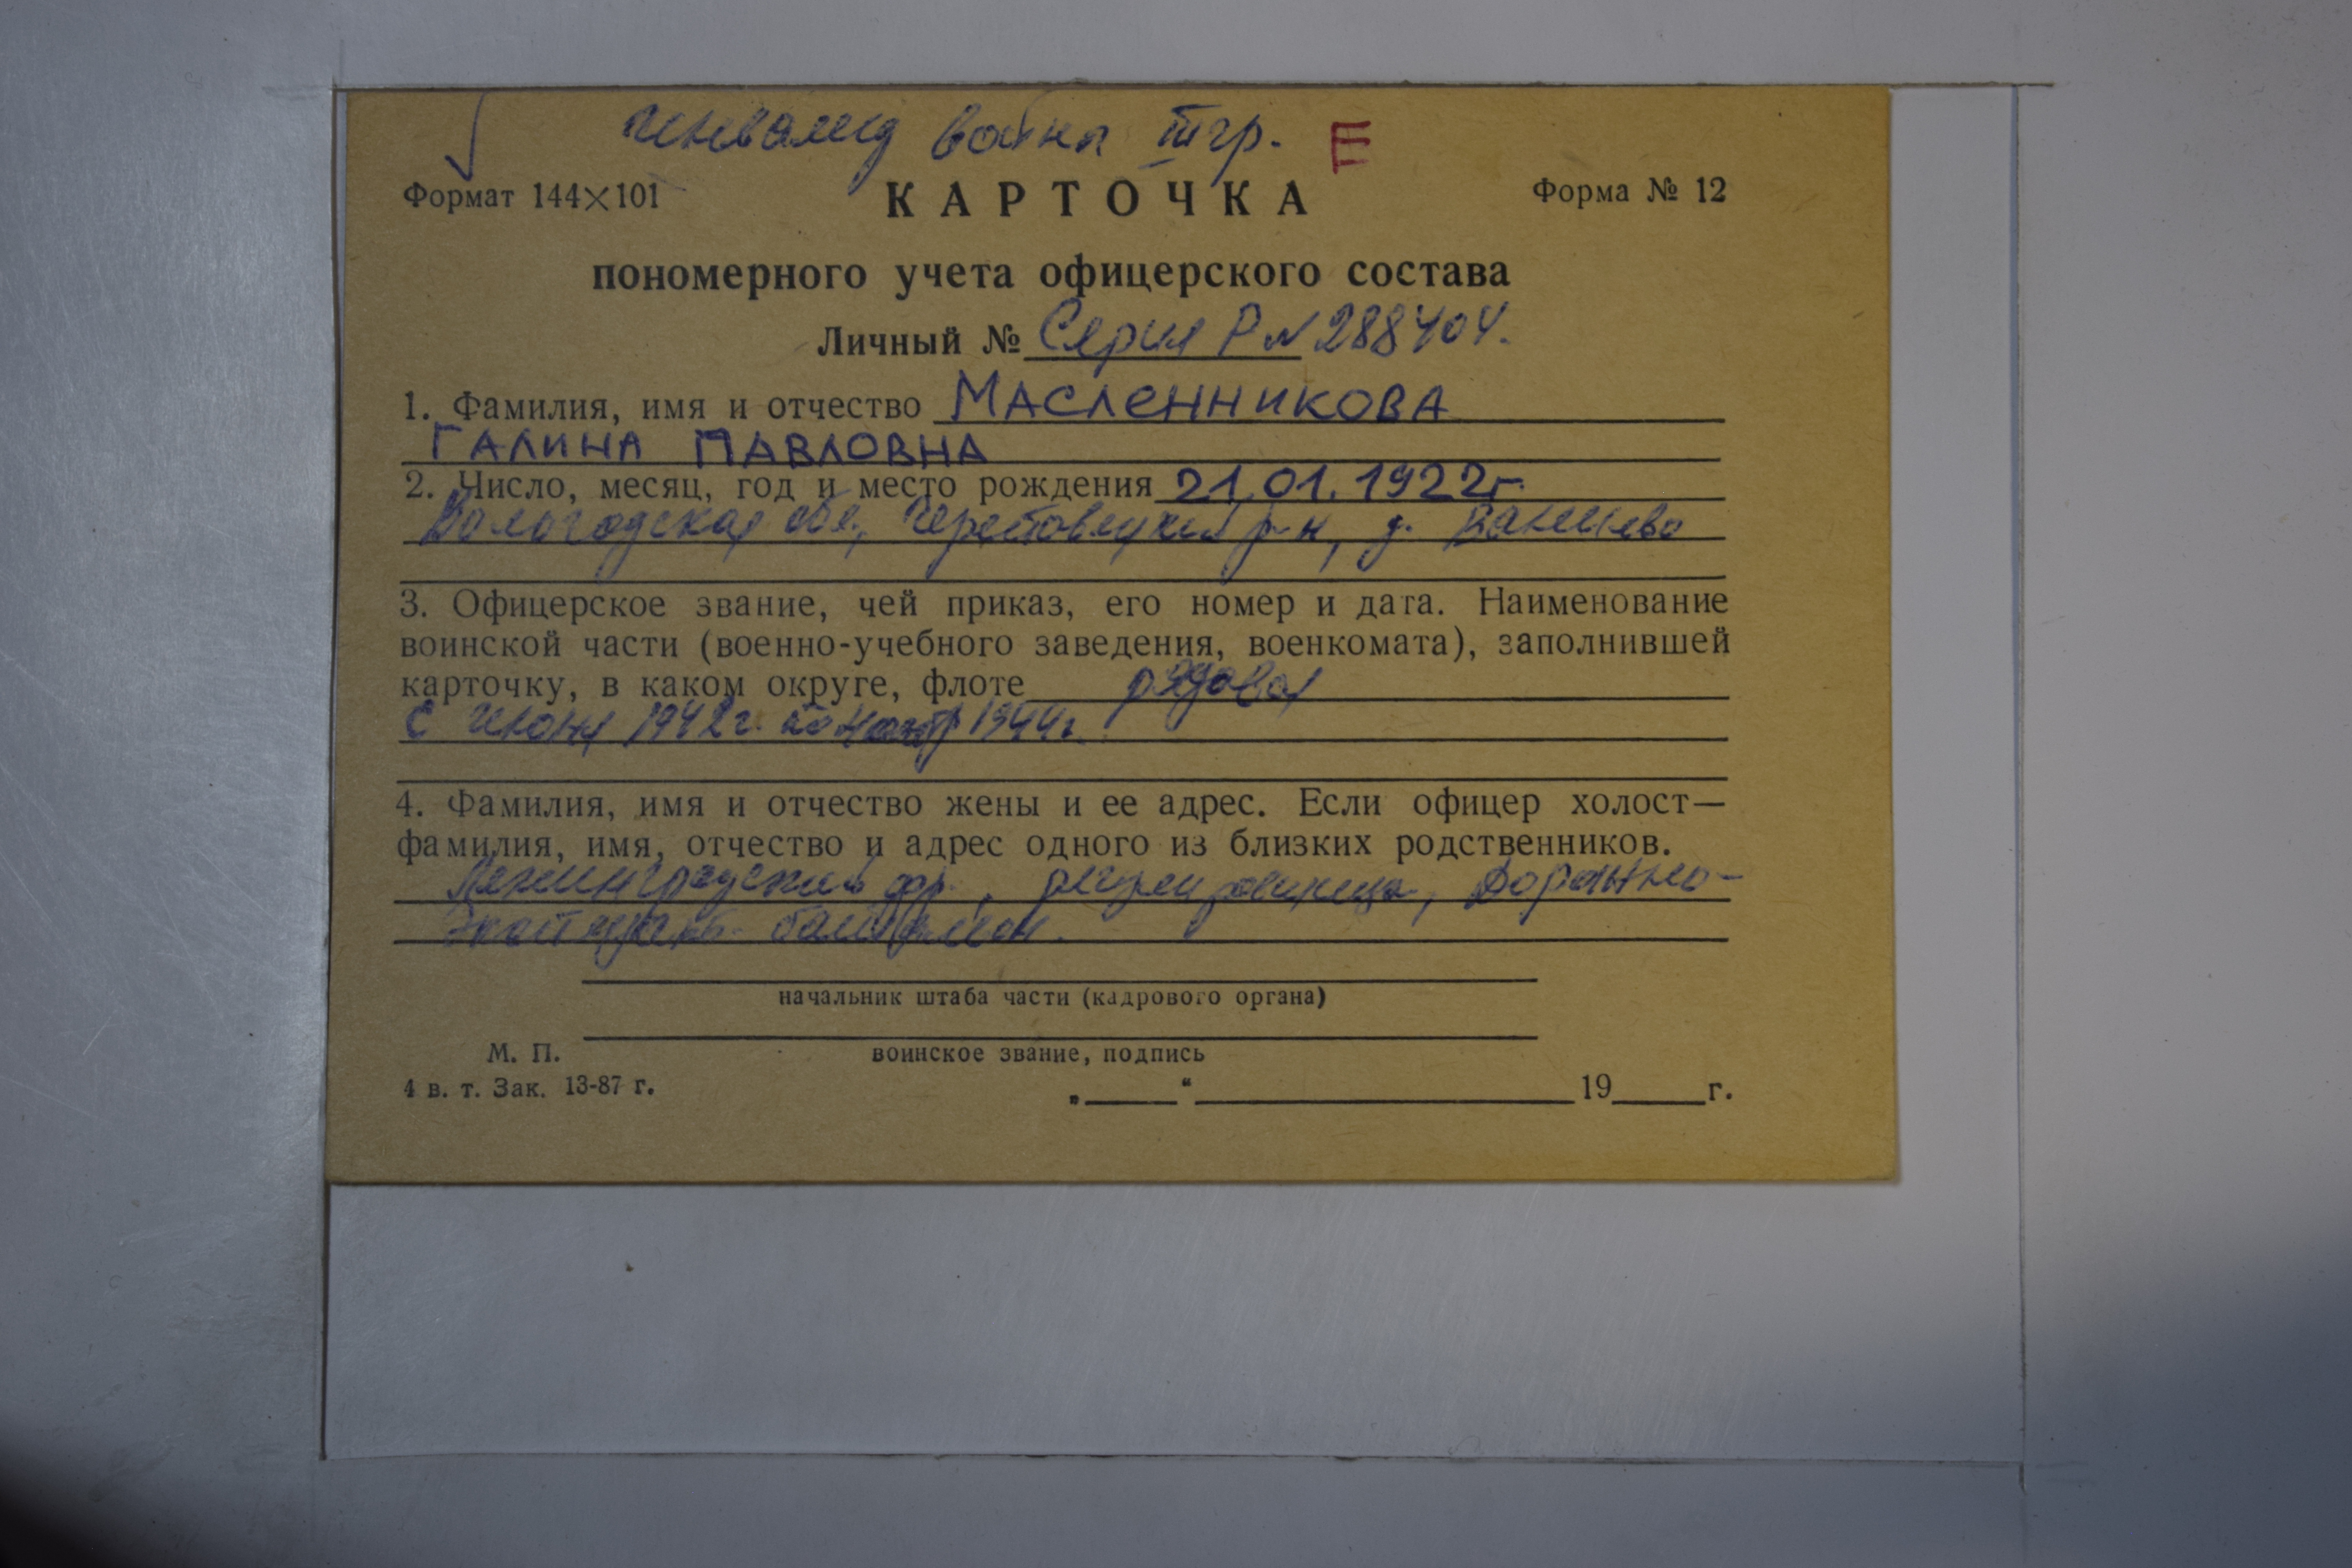 инвалид войны III гр. E
Формат 144×101 КАРТОЧКА Форма № 12
пономерного учета офицерского состава
Личный № Серия Р № 288404.
1. Фамилия, имя и отчество МАСЛЕННИКОВА
ГАЛИНА ПАВЛОВНА
2. Число, месяц, год и место рождения 21.01.1922г.
Вологодская обл., Череповецкий р-н, д. Ванеево
3. Офицерское звание, чей приказ, его номер и дата. Наименование
воинской части (военно-учебного заведения, военкомата), заполнившей
карточку, в каком округе, флоте рядовая
с июня 1942г. по 1944г.
4. Фамилия, имя и отчество жены и ее адрес. Если офицер холост—
фамилия, имя, отчество и адрес одного из близких родственников.
Ленинградский фр., регулировщица, Дорожно-
эксплуат. батальон.
начальник штаба части (кадрового органа)
М. П. воинское звание, подпись
4 в. т. Зак. 13-87 г. „ “ 19 г.